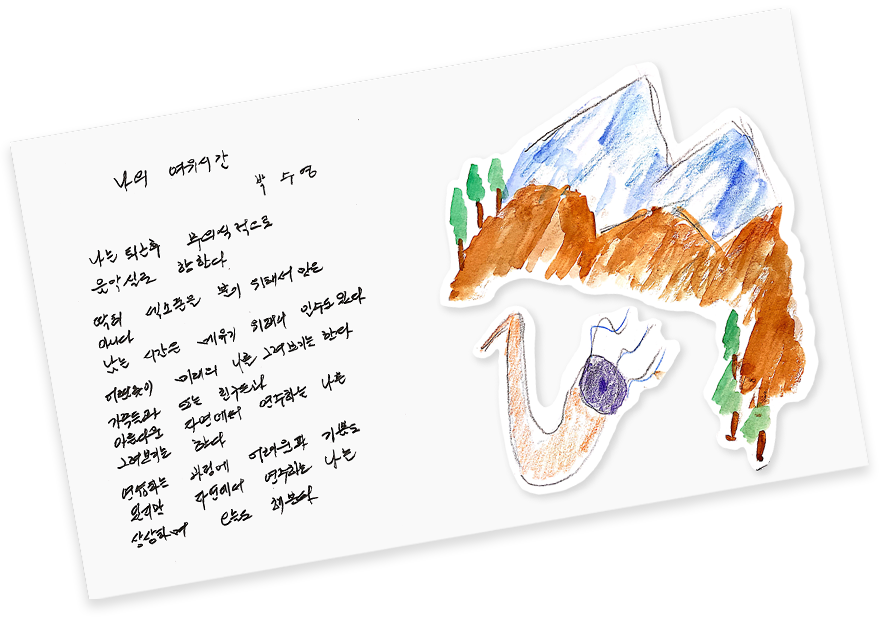 나의 여유시간
박수영
나는 퇴근후 무의식적으로
음악실로 향한다
딱히 색소폰은 불기 위해서 만은
아니다
남는 시간은 때우기 위해서 일수도 있다
어렴풋이 미래의 나를 그려보기도 한다
가족들과 또는 친구들과
아름다운 자연에서 연주하는 나를
그려보기도 한다
연습하는 과정에 어려움과 기쁨도
있지만 자연에서 연주하는 나는
상상하며 오늘도 해본다